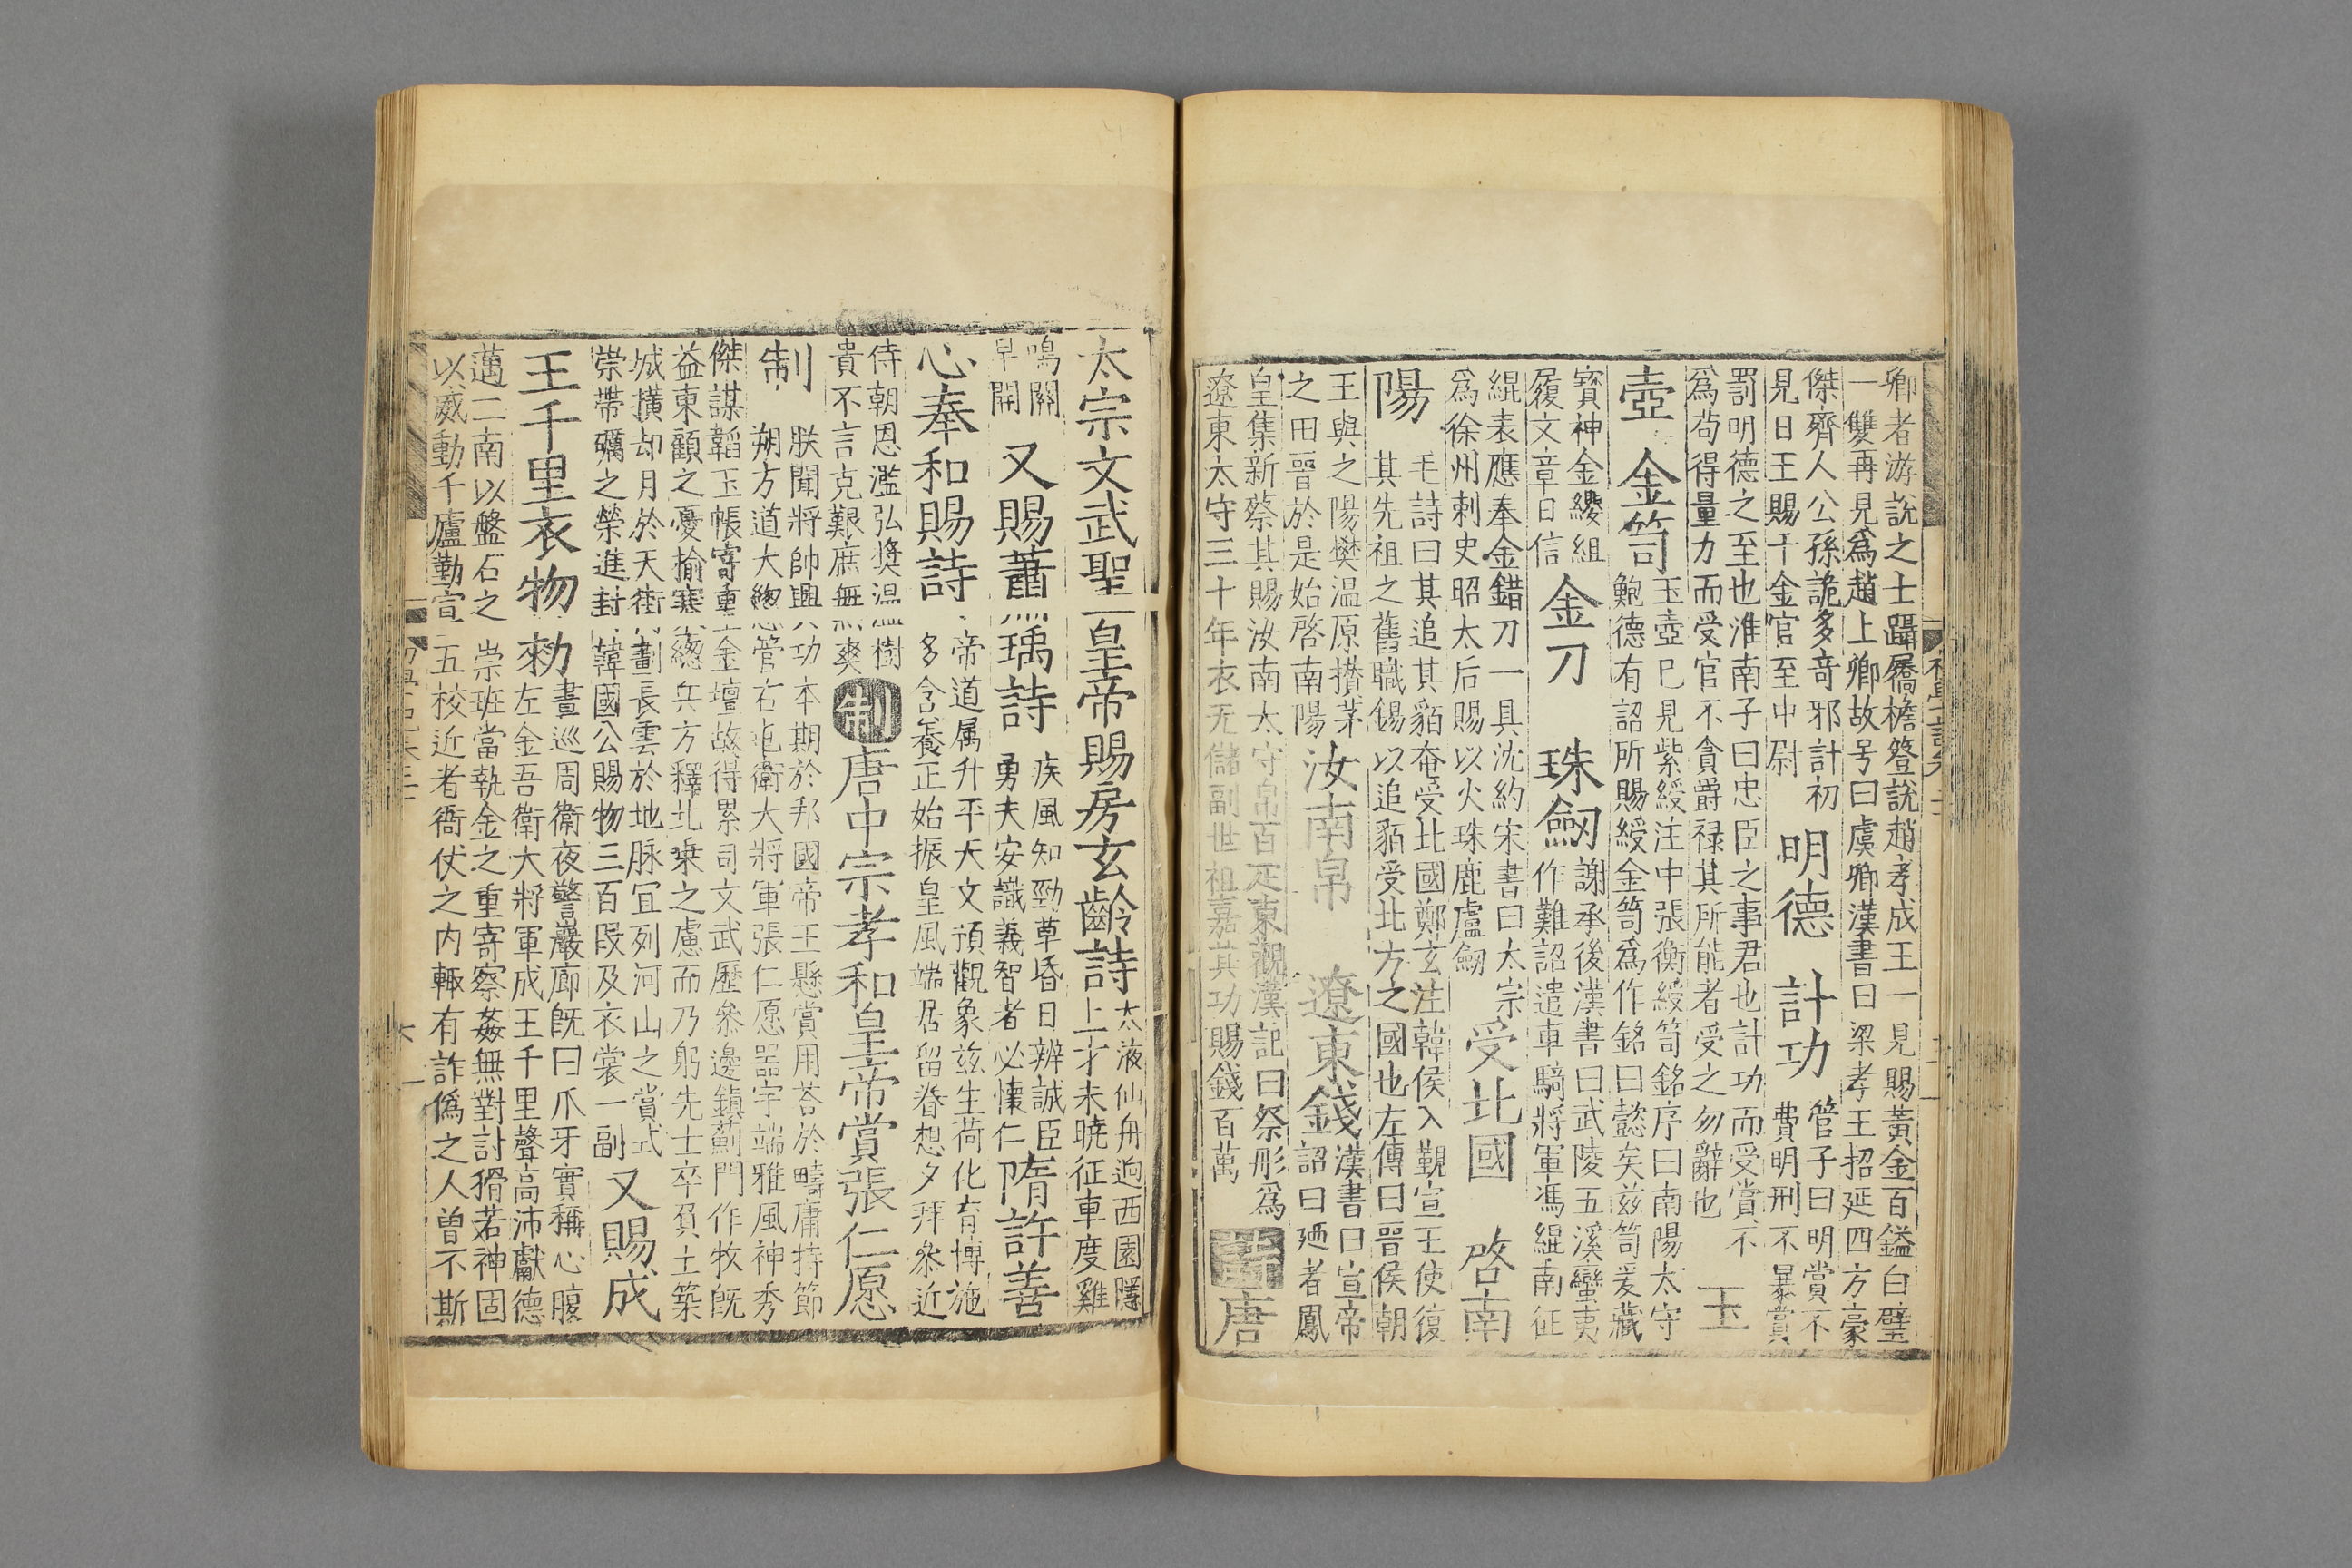 卿者游説之士躡屩檐簦說趙孝成王一見賜黃金百鎰白璧
一雙再見爲趙上卿故号曰虞卿漢書曰梁孝王招延四方豪
傑齊人公孫詭多竒邪計初
見日王賜千金官至中尉
明德 計功
管子曰明賞不
費明刑不暴賞
罰明德之至也淮南子曰忠臣之事君也計功而受賞不
爲苟得量力而受官不貪爵禄其所能者受之勿辭也
玉
壺 金笥
玉壺巳見紫綬注中張衡綬笥銘序曰南陽太守
鮑德有詔所賜綬金笥爲作銘曰懿矣兹笥爰藏
寳神金纓組
履文章日信
金刀 珠劒
謝承後漢書曰武陵五溪蠻夷
作難詔遣車騎將軍馮緄南征
緄表應奉金錯刀一具沈約宋書曰太宗
爲徐州刺史昭太后賜以火珠鹿盧劒
受北國 啓南
陽
毛詩曰其追其貊奄受北國鄭玄注韓侯入覲宣王使復
其先祖之舊職錫以追貊受北方之國也左傳曰晉侯朝
王與之陽樊温原攅茅
之田晉於是始啓南陽
汝南帛 遼東錢
漢書曰宣帝
詔曰廼者鳳
皇集新蔡其賜汝南太守帛百疋東觀漢記曰祭肜爲
遼東太守三十年衣无儲副世祖嘉其功賜錢百萬
詩
唐
太宗文武聖皇帝賜房玄齡詩
太液仙舟逈西園隱
上才未曉征車度雞
鳴關
早開
又賜蕭瑀詩
疾風知勁草昏日辨誠臣
勇夫安識義智者必懷仁
隋許善
心奉和賜詩
帝道属升平天文預觀象兹生荷化育博施
多含養正始振皇風端居留眷想夕拜叅近
侍朝恩濫弘奬温樹
貴不言克艱庶無爽
制
唐中宗孝和皇帝賞張仁愿
制
朕聞將帥興功本期於邦國帝王懸賞用荅於疇庸持節
朔方道大緫管右屯衛大將軍張仁愿器宇端雅風神秀
傑謀韜玉帳寄重金壇故得累司文武歷叅邊鎮薊門作牧旣
益東顧之憂揄寒緫兵方釋北乗之慮而乃躬先士卒負土築
城横却月於天街劃長雲於地脉冝列河山之賞式
崇帶礪之榮進封韓國公賜物三百段及衣裳一副
又賜成
王千里衣物勑
晝巡周衛夜警巖廊旣曰爪牙實稱心腹
左金吾衛大將軍成王千里聲高沛獻德
邁二南以盤石之崇班當執金之重寄察姦無對討猾若神固
以威動千廬勤宣五校近者禬仗之内輙有詐僞之人曾不斯